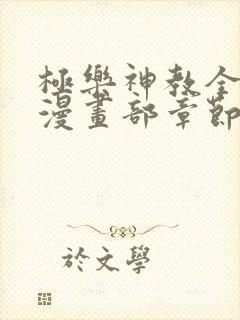 極樂神教全
漫畫部章節
於文學